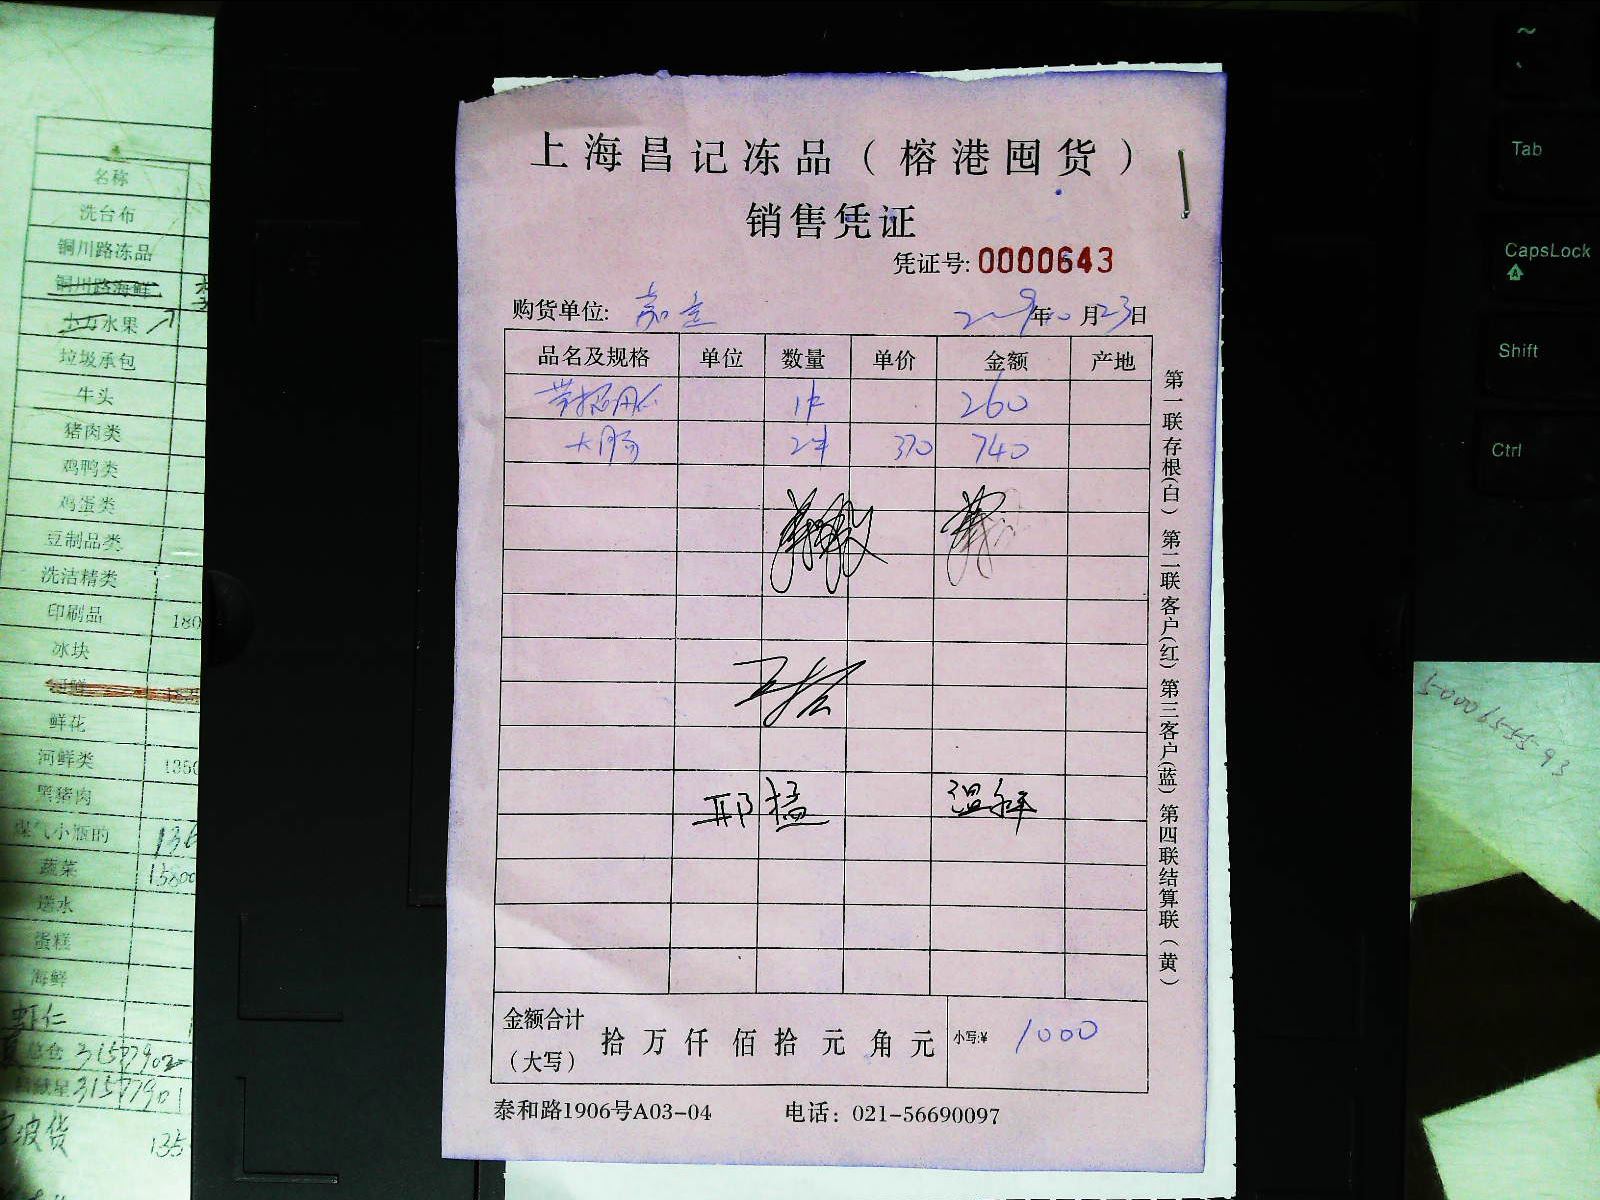 上海昌记冻品（榕港囤货）
销售凭证
凭证号:0000643
购货单位: 嘉定
2009年10月23日
品名及规格 单位 数量 单价 金额 产地
1件 260
大肠 2件 370 740
邢猛 温祥
金额合计（大写） 拾 万 仟 佰 拾 元 角 元 小写:¥ 1000
泰和路1906号A03-04 电话: 021-56690097
第一联存根(白) 第二联客户(红) 第三客户(蓝) 第四联结算联(黄)
名称
洗台布
铜川路冻品
铜川路海鲜
水果
垃圾承包
牛头
猪肉类
鸡鸭类
鸡蛋类
豆制品类
洗洁精类
印刷品 180
冰块
鲜花
河鲜类 1350
黑猪肉
煤气小瓶的 136
蔬菜 15800
送水
蛋糕
海鲜
虾仁
总仓 31577902
31577901
波货 135
~
Tab
CapsLock
Shift
Ctrl